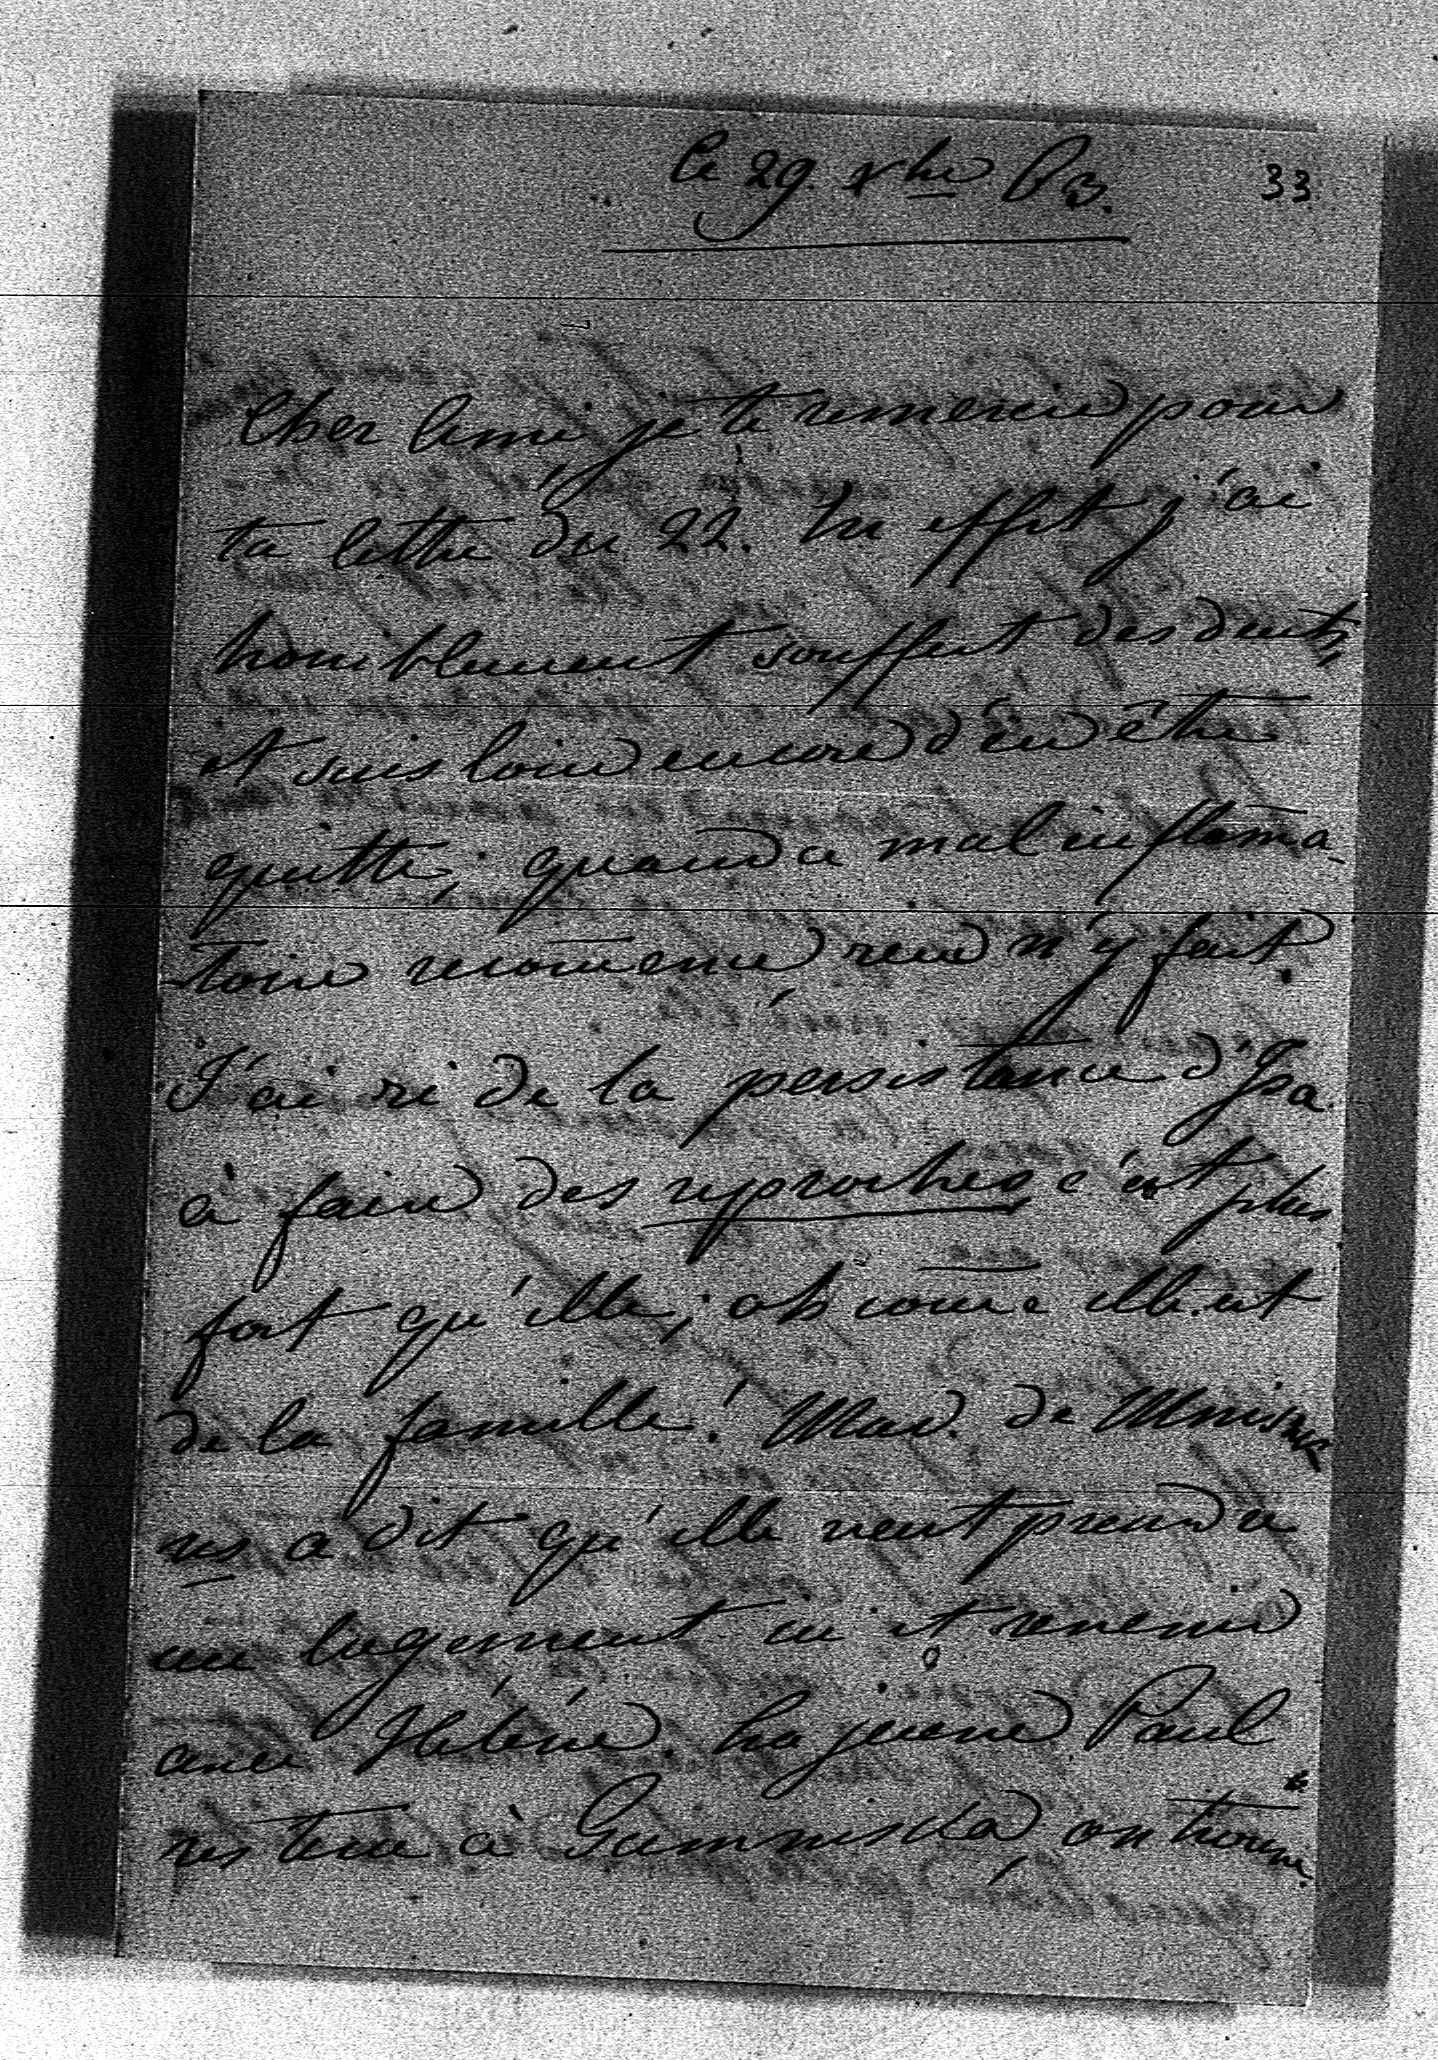 Ce 29. Xbre 63.
33
Cher Ami je te remercie pour
ta lettre du 22. En effet j'ai
horriblement souffert des dents,
et suis loin encore d'en être
quitte, quand ce mal inflam̄a-
toire recom̄ence rien n'y fait.
J'ai ri de la persistance d'Isa
à faire des reproches c'est plus
fort qu'elle, oh com̄e elle est
de la famille! Mad. de
a dit qu'elle veut prendre
un logement ici et revenir
avec Hélène. La jeune Paul
restera à on